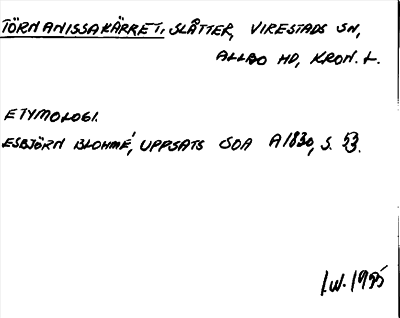 TÖRNANISSAKÄRRET, SLÅTTER, VIRESTADS SN,
ALLBO HD, KRON. L.
ETYMOLOGI.
ESBJÖRN BLOHMÉ, UPPSATS SOA A1830, S. 53.
I.W. 1995